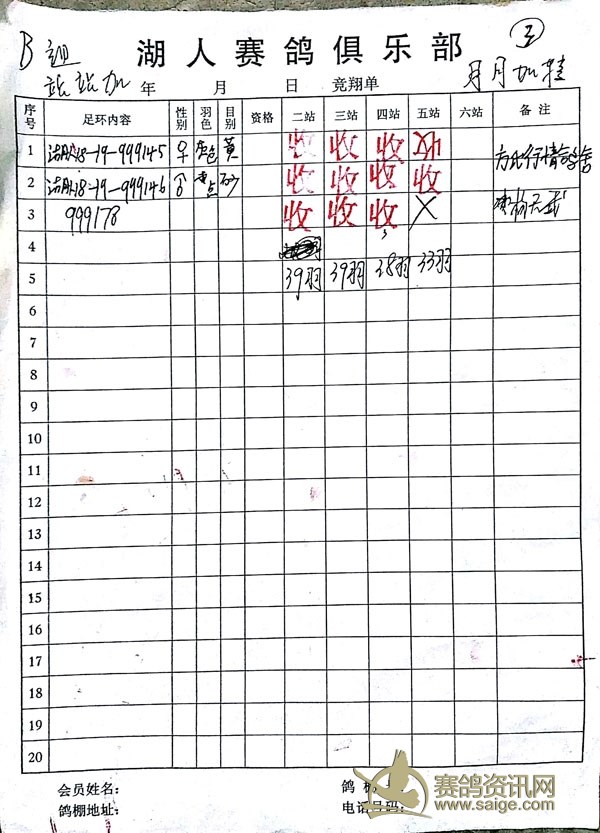 B组
湖人赛鸽俱乐部
③
站站加 年 月 日 竞翔单
月月加
序号 足环内容 性别 羽色 目别 资格 二站 三站 四站 五站 六站 备注
1 18-19-999145 ♀ 黄 收 收 收
2 18-19-999146 点 砂 收 收 收 收
3 999178 收 收 收 X
4
5 39羽 39羽 38羽 33羽
6
7
8
9
10
11
12
13
14
15
16
17
18
19
20
会员姓名: 鸽
鸽棚地址: 电话号码:
赛鸽资讯网
www.saige.com